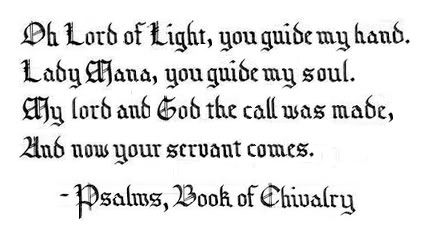 Oh Lord of Light, you guide my hand.
Lady Mana, you guide my soul.
My lord and God the call was made,
And now your servant comes.
- Psalms, Book of Chivalry